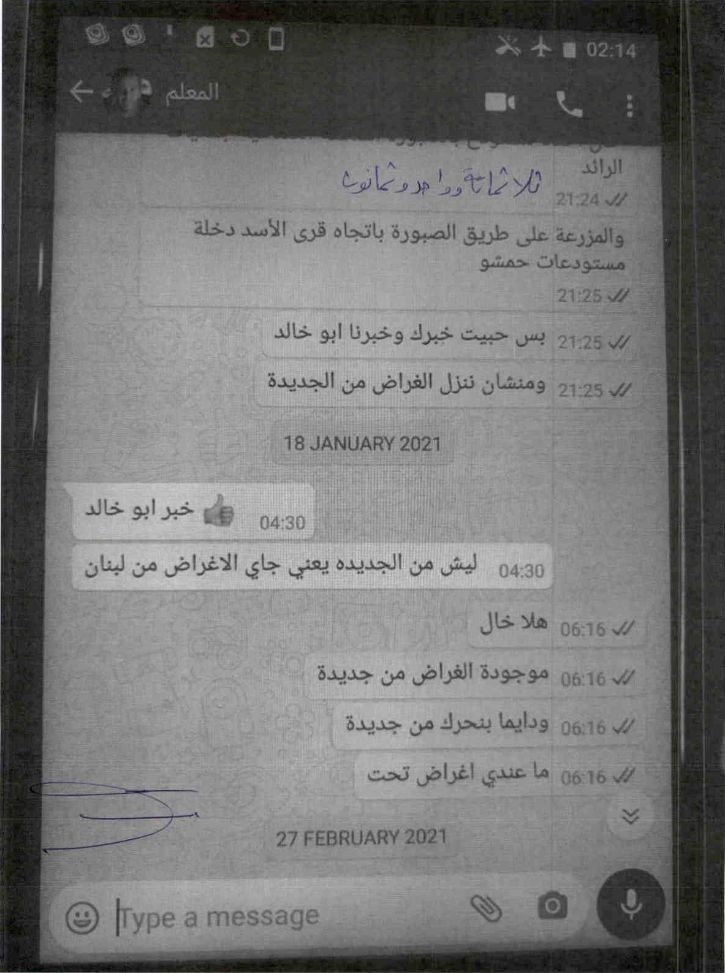 02:14
المعلم
الرائد
21:24
ثلاثمائة وواحد وثمانون
والمزرعة على طريق الصبورة باتجاه قرى الأسد دخلة
مستودعات حمشو
21:25
بس حبيت خبرك وخبرنا ابو خالد
21:25
ومنشان ننزل الغراض من الجديدة
21:25
18 JANUARY 2021
خبر ابو خالد 👍
04:30
ليش من الجديده يعني جاي الاغراض من لبنان
04:30
هلا خال
06:16
موجودة الغراض من جديدة
06:16
ودايما بنحرك من جديدة
06:16
ما عندي اغراض تحت
06:16
27 FEBRUARY 2021
Type a message